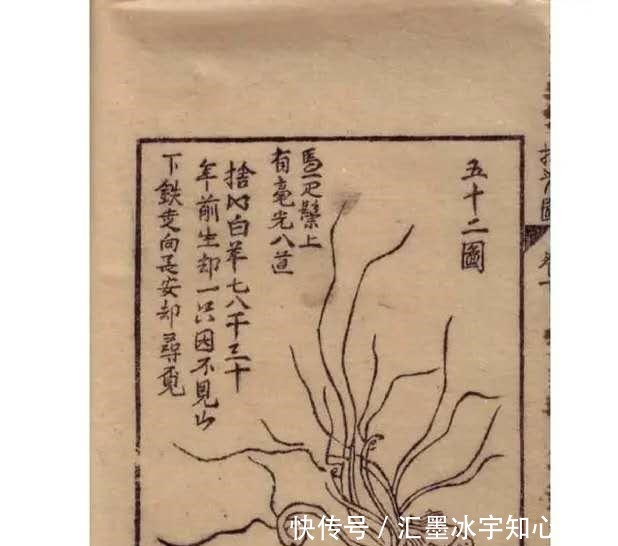 五十二圖
馬一疋鬃上
有毫光八道
捨白羊七八千三十
年前生却一只因不見山
下鉄走向長安却尋覓
快传号 / 汇墨冰宇知心